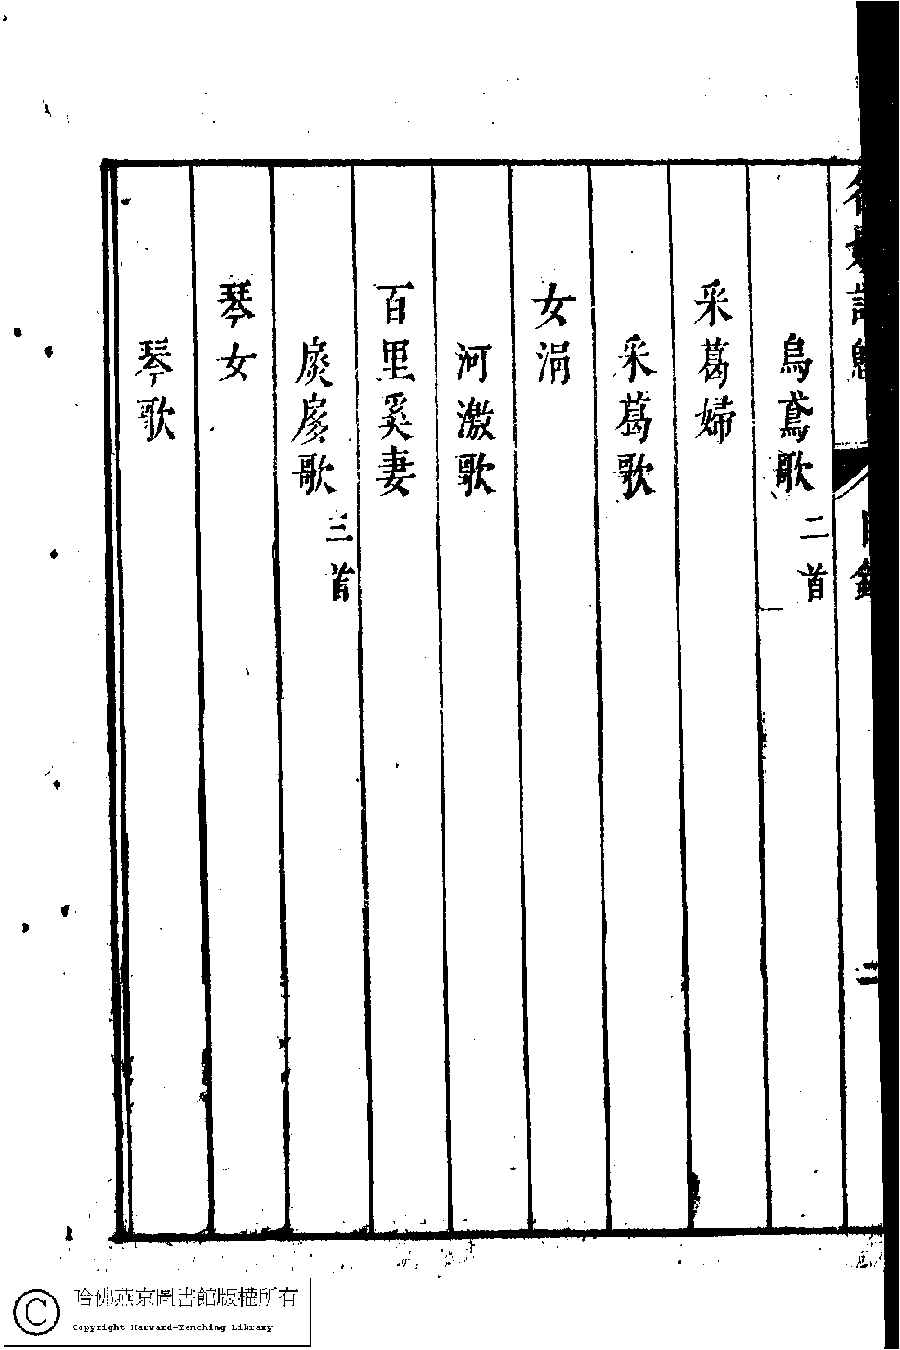 名媛詩歸 目錄 二
烏鳶歌 二首
采葛婦
采葛歌
女涓
河激歌
百里奚妻
扊扅歌 三首
琴女
琴歌
哈佛燕京圖書館版權所有
Copyright Harvard-Yenching Library